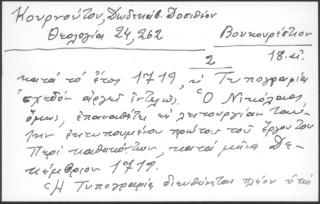 Κουρνούτου, Δωδεκάβ. Δοσιθέου
Θεολογία 24, 262
Βουκουρέστιον
18. αἰ.
2
κατά τό ἔτος 1719, ἡ Τυπογραφία
σχεδόν ἀργεῖ ἐντελῶς. Ὁ Νικόλαος
ὅμως, ἐπαναθέτει εἰς λειτουργίαν ταύ-
την ἐκτυπουμένου πρώτου τοῦ ἔργου του
Περί καθηκόντων, κατά μῆνα Δε-
κέμβριον 1719.
Ἡ Τυπογραφία διευθύνεται πλέον ὑπό